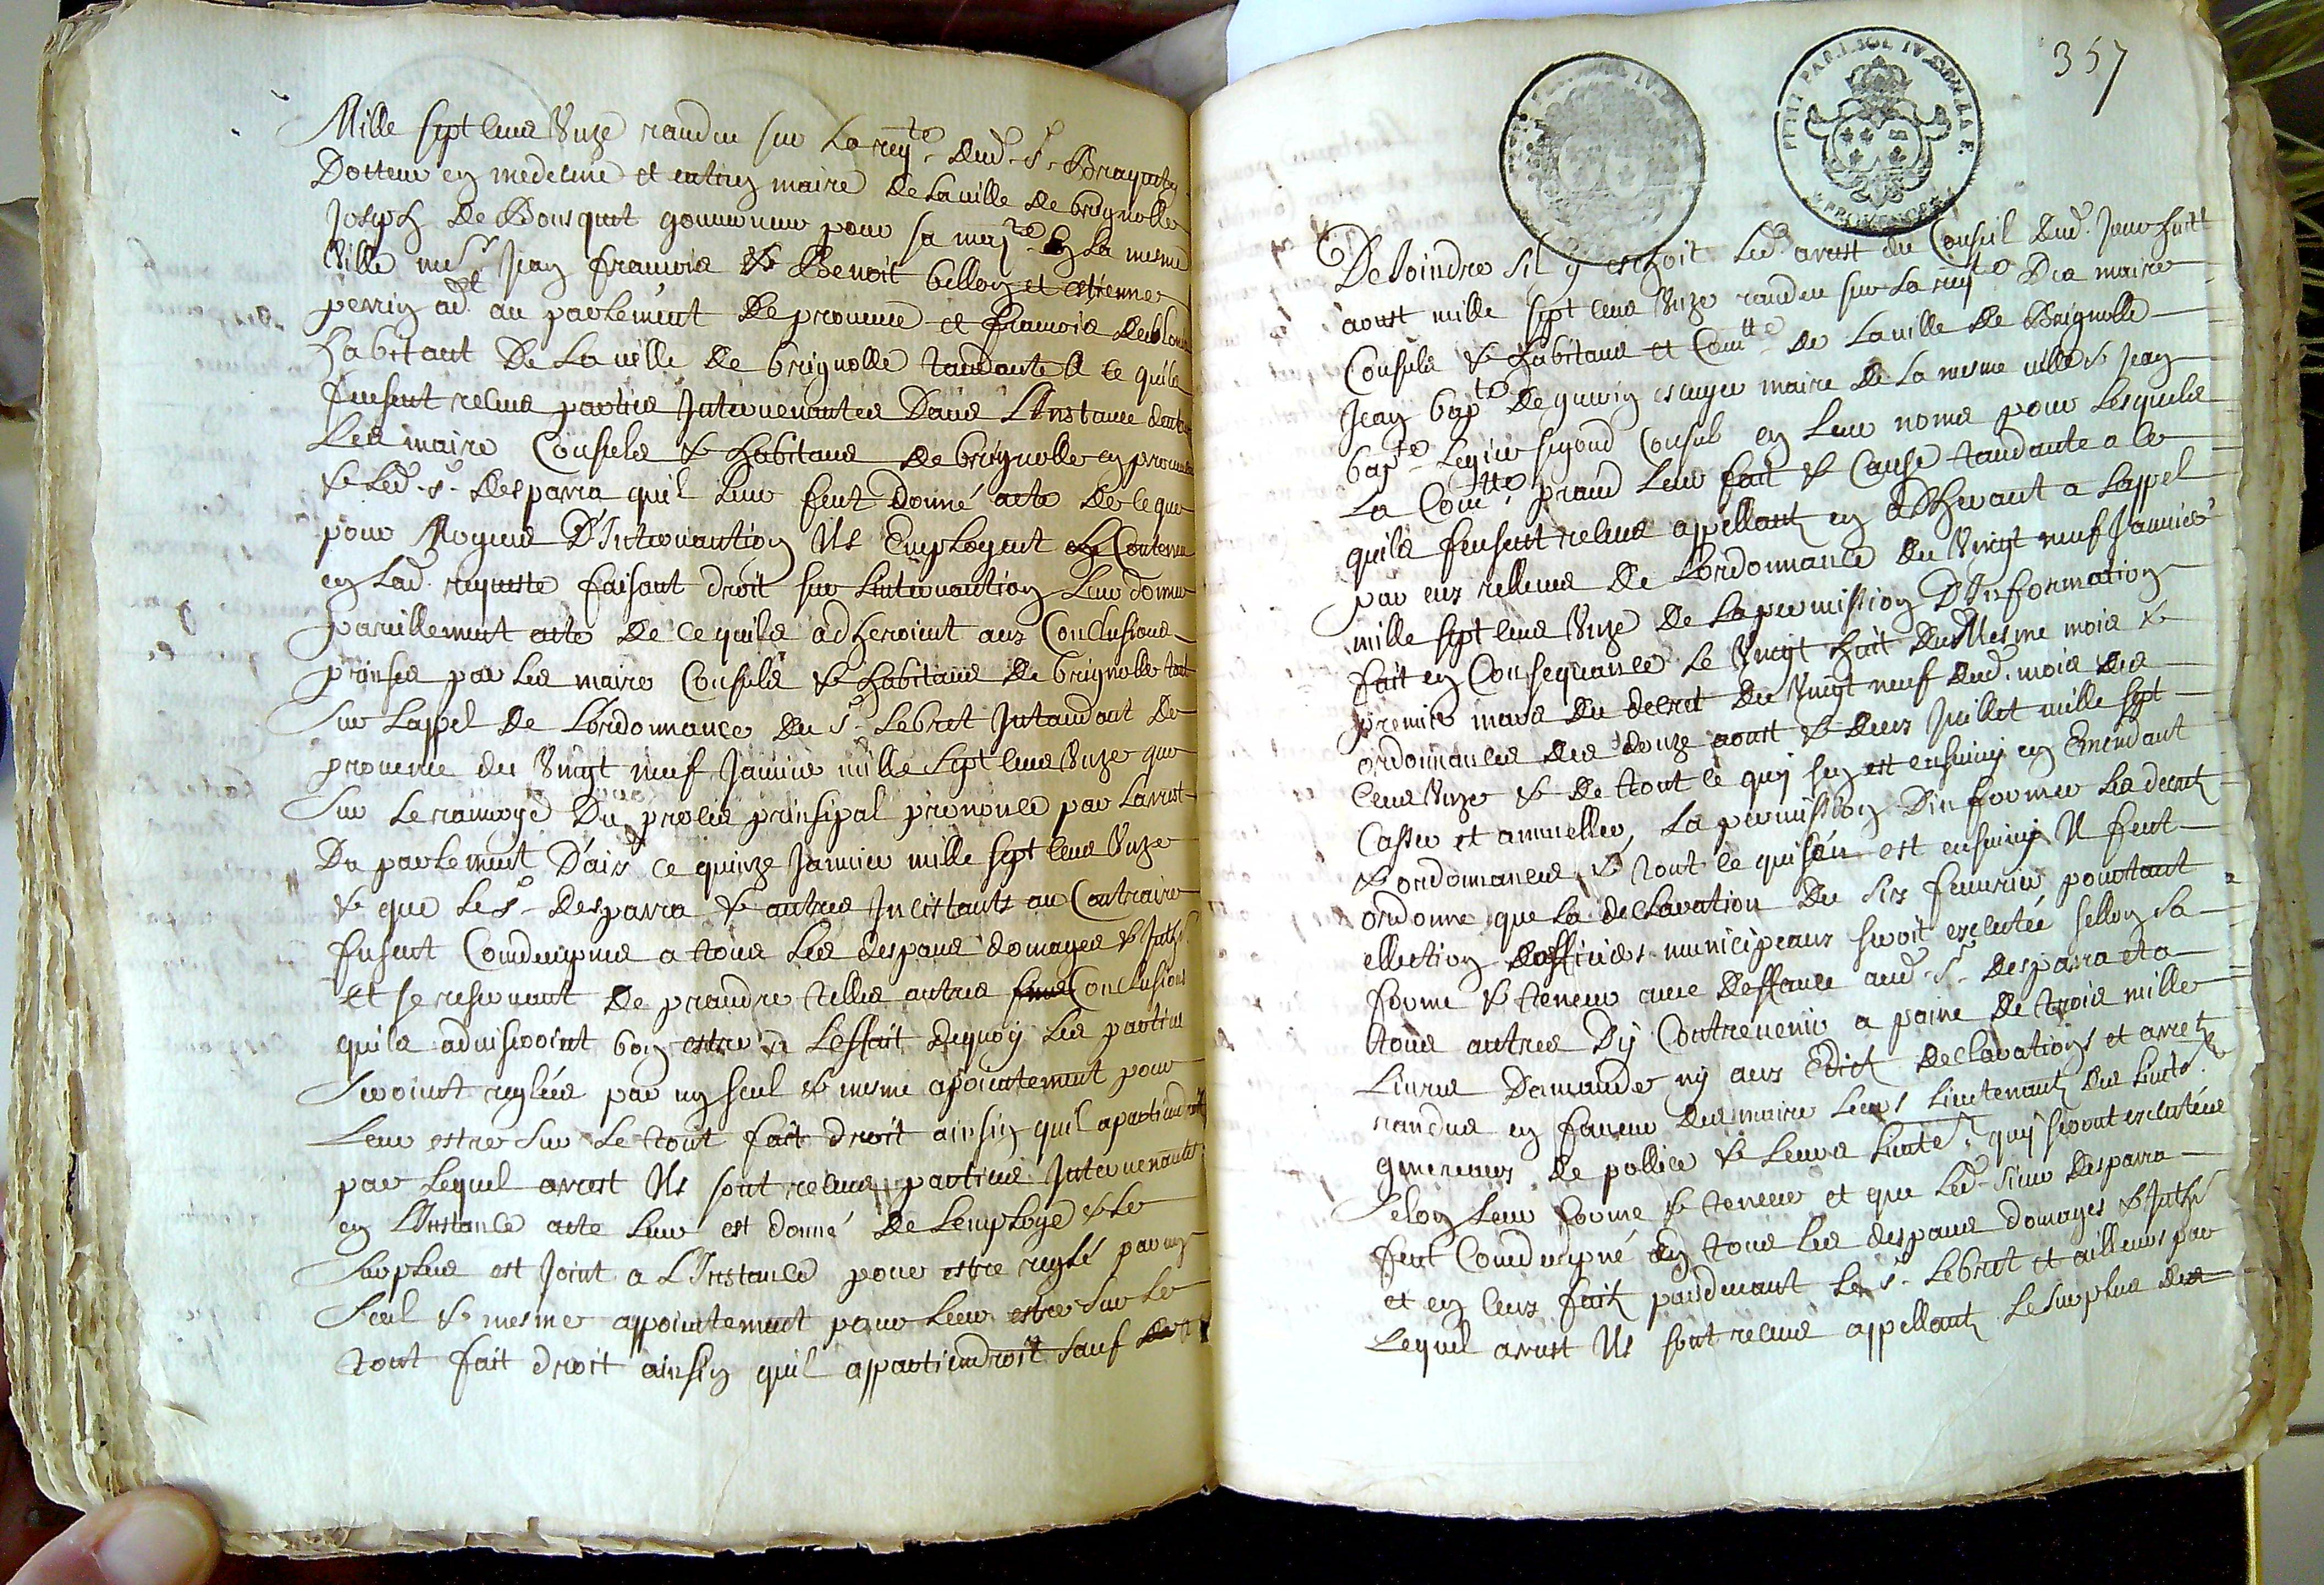 Mille sept cens Unze randeu sur la reqte dud. Sr. Braquety
Docteur en medecine et entien maire de la ville de brignolle
Joseph de Bousquet gouverneur pour sa majte en la mesme
Ville mesr Jean francois & Benoit bellon et estienne
perrin adt au parlement de provence et francois
habitant de la ville de brignolle tandante a ce quils
feusent receus parties Intervenantes dans L'Instance d'entre
Les maire Consuls & habitans de brignolle en provence
& led. sr. desparra quil leur feut donné acte de ce que
pour Moyens D'Intervantion Ils Employent le Contenu
en lad. requeste faisant droit sur lintervantion leur donner
pareillement acte de ce quils adheroient aux Conclusions
prinses par les maire Consuls & habitans de brignolle tant
Sur lappel de L'ordonnance du sr. Lebret Intandant de
provence du Vingt neuf Janvier mille sept cens Unze que
Sur le ranvoye du procés prinsipal prononcé par larrest
Du parlement D'aix ce quinze Janvier mille sept cens Unze
& que le sr. desparra & autres Incistants au Contraire
fusent Condempnes a tous les despans domages & Inths.
Et se reservant de prandre telles autres fins Conclusions
quils adviseroint bon estre a Leffait dequoy les parties
Seroint reglées par un seul & mesme apointement pour
Leur estre sur le tout fait droit ainsin quil apartiendroit
par lequel arrest Ils sont receus parties Intervenantes
en L'Instance acte leur est donné de lemploye & le
Surplus est Joint a L'Instance pour estre reglé par un
Seul & mesme appointement pour leur estre sur le
tout fait droit ainsin quil appartiendroit sauf
357
PETIT PAP. 1. SOL IV. DEN. LA F.
PROVENCE
De Joindre sil y eschoit led. arrest du Conseil dud. Jour huit
aoust mille sept cens Unze randeu sur la reqte Des maire
Consuls & habitans et Comtte de la ville de Brignolle
Jean bapte deguerin escuyer maire de la mesme ville & Jean
bapte Legier segond Consul en leur noms pour lesquels
La Comtte prand leur fait & Cause tandante a ce
quils feusent receus appellantz en adherant a lappel
par eux relleves de Lordonnance du Vingt neuf Janvier
mille sept cens Unze de la permission D'Information
fait en Consequance le Vingt huit du Mesme mois &
premier mars du decret du Vingt neuf dud. mois des
ordonnances des douze aoust & deux Juillet mille sept
cens Unze & de tout ce quy sen est ensuiny en Emendant
Casser et annueller, La permission Dinformer les decretz
& ordonnances & tout ce qui sen est ensuiny Il feut
ordonne que la declaration du six fevrier pourtant
ellection dofficiers municipeaux seroit executée sellon sa
forme & teneur avec deffance aud. Sr. desparra et a
tous autres Dy Contrevenir a paine de trois mille
Livres Damande ny aux Edictz declarations et arretz
randus en faveur des maire leurs Lieutenantz
generaux de pollice & leurs quy seront executées
Selon leur forme & teneur et que led. sieur desparra
feut Condempné en tous les despans domages & Inths
et en ceux faitz pandenant le sr. Lebret et ailleurs par
Lequel arrest Ils sont receus appellantz Le surplus des